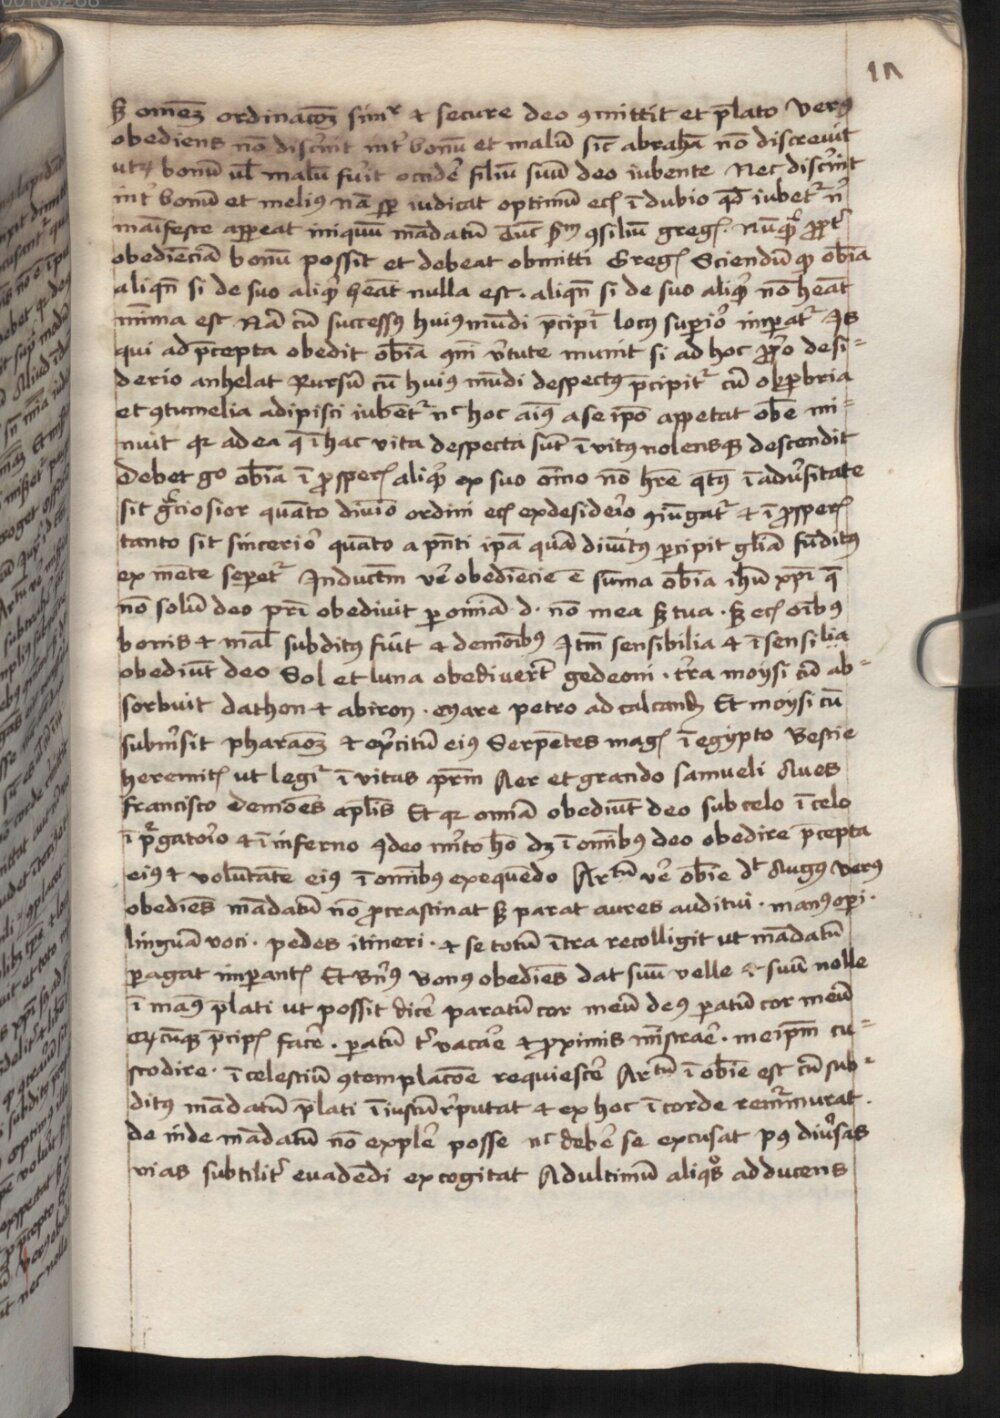 18
sꝫ omēꝫ ordinacōꝫ simᵖˡ & secure deo ꝯmittit et p̄lato Verꝯ
obediens nō discˀnit int̉ bonū et malū sic̄ abrahā nō discreuit
utꝝ bonū uł malū fuˀit occideˀ filiū suū deo iubente Nec discˀnit
int̉ bonū et meliꝯ nā sꝑ iudicat optimū ī dubio qd̄ iubet̉ nˡ
maīfeste appeat iniquū mādatū ꝯsiliū gregͥ.
obediēciā bonū possit et debeat obmitti Gregͥ Sciendū ꝙ obīa
aliqn̄ si de suo aliqͥd hēat nulla est. aliqn̄ si de suo aliqͥd nō hēat
mīma est Nā cū successꝯ huiꝯ mūdi p̄cipit̉ locꝯ suꝑioˀ imꝑat̉ Is
qui ad p̄cepta obedit obīa v̉tute munit si ad hoc ꝓpͥo desi=
derio anhelat Rursū cū huiꝯ mūdi despectꝯ p̄cipit̉ cū obꝓbria
et ꝯtumelia adipisci iubent̉ nͨ hoc aīꝯ a se ipō appetat obīe mi=
nuit qꝛ ad ea q̄ ī hac vita despecta sūt īvitꝯ nolensqꝫ descendit
Debet go obīa ī ꝓspeͥs aliqͥd ex suo om̄o nō hr̄e ī adůsitate
sit gͣciosior quāto diuīo ordini ex desideͥo ꝯiūgat̉ & ī ꝓspeͥs
tanto sit sincerioˀ quāto a pn̄ti ipā quā diuītꝯ ꝑcipit gl̄iā fūditꝯ
ex mēte seꝑet̉ Inductīm v̉o obediēcie ē sūma obīa ih̄u xp̄i q̄
nō solū deo pr̄i obediuit ꝑ omīa d. nō mea sꝫ tua. sꝫ oībꝯ
bonis & mal̄ subditꝯ fuīt & demōibꝯ Itm̄ sensibilia & ī sensilia
obediūt deo Sol et luna obediver̄t gedeoni. tˀra moysi cū ab=
sorbuit dathon & abiron. Mare petro ad calcand̄ Et moysi cū
submˀsit pharaōꝫ & exˀcitū eiꝯ Serpētes magͥ ī egypto Bestie
heremit̄ ut legͥt ī vitas pr̄m Aer et grando samueli Aues
francisco Demōes apl̄is Et qꝛ omīa obediūt deo sub celo ī celo
ī pͬgatoͥo & ī inferno iᵈeo mͭo hō dꝫ ī omībꝯ deo obedire p̄cepta
eiꝯ & volūtatē eiꝯ ī omībꝯ exequēdo Artᵐ v̉e obīe dt̄ Augꝯ verꝯ
obediēs mādatū nō ꝓcrastinat sꝫ parat aures auditui. manꝯ oꝑi.
linguā voci. pedes itineri. & se totū ītra recolligit ut mādatū
ꝑagat imꝑantͥ Et Bn̄ꝯ bonus obediēs dat suū velle & suū nolle
ī manꝯ p̄lati ut possit diceˀ paratū cor meū deꝯ ꝑatū cor meū
p̄cipͥs faceˀ. ꝑatū tͥ vacaˀe & ꝓximis mͥstraˀe. me ipm̄ cu=
stodire. ī celestiū ꝯtemplacōe requiesceˀ Artᵐ ī obīe est cū sub=
ditꝯ mādatū p̄lati īiustū rˀputat & ex hoc ī corde remͬmurat.
de inde mādatū nō expleˀ posse nͨ debeˀ se excusat pꝯ diuˀsas
vias subtilit̉ euadēdi excogitat Ad ultimū aliqͦs adducens